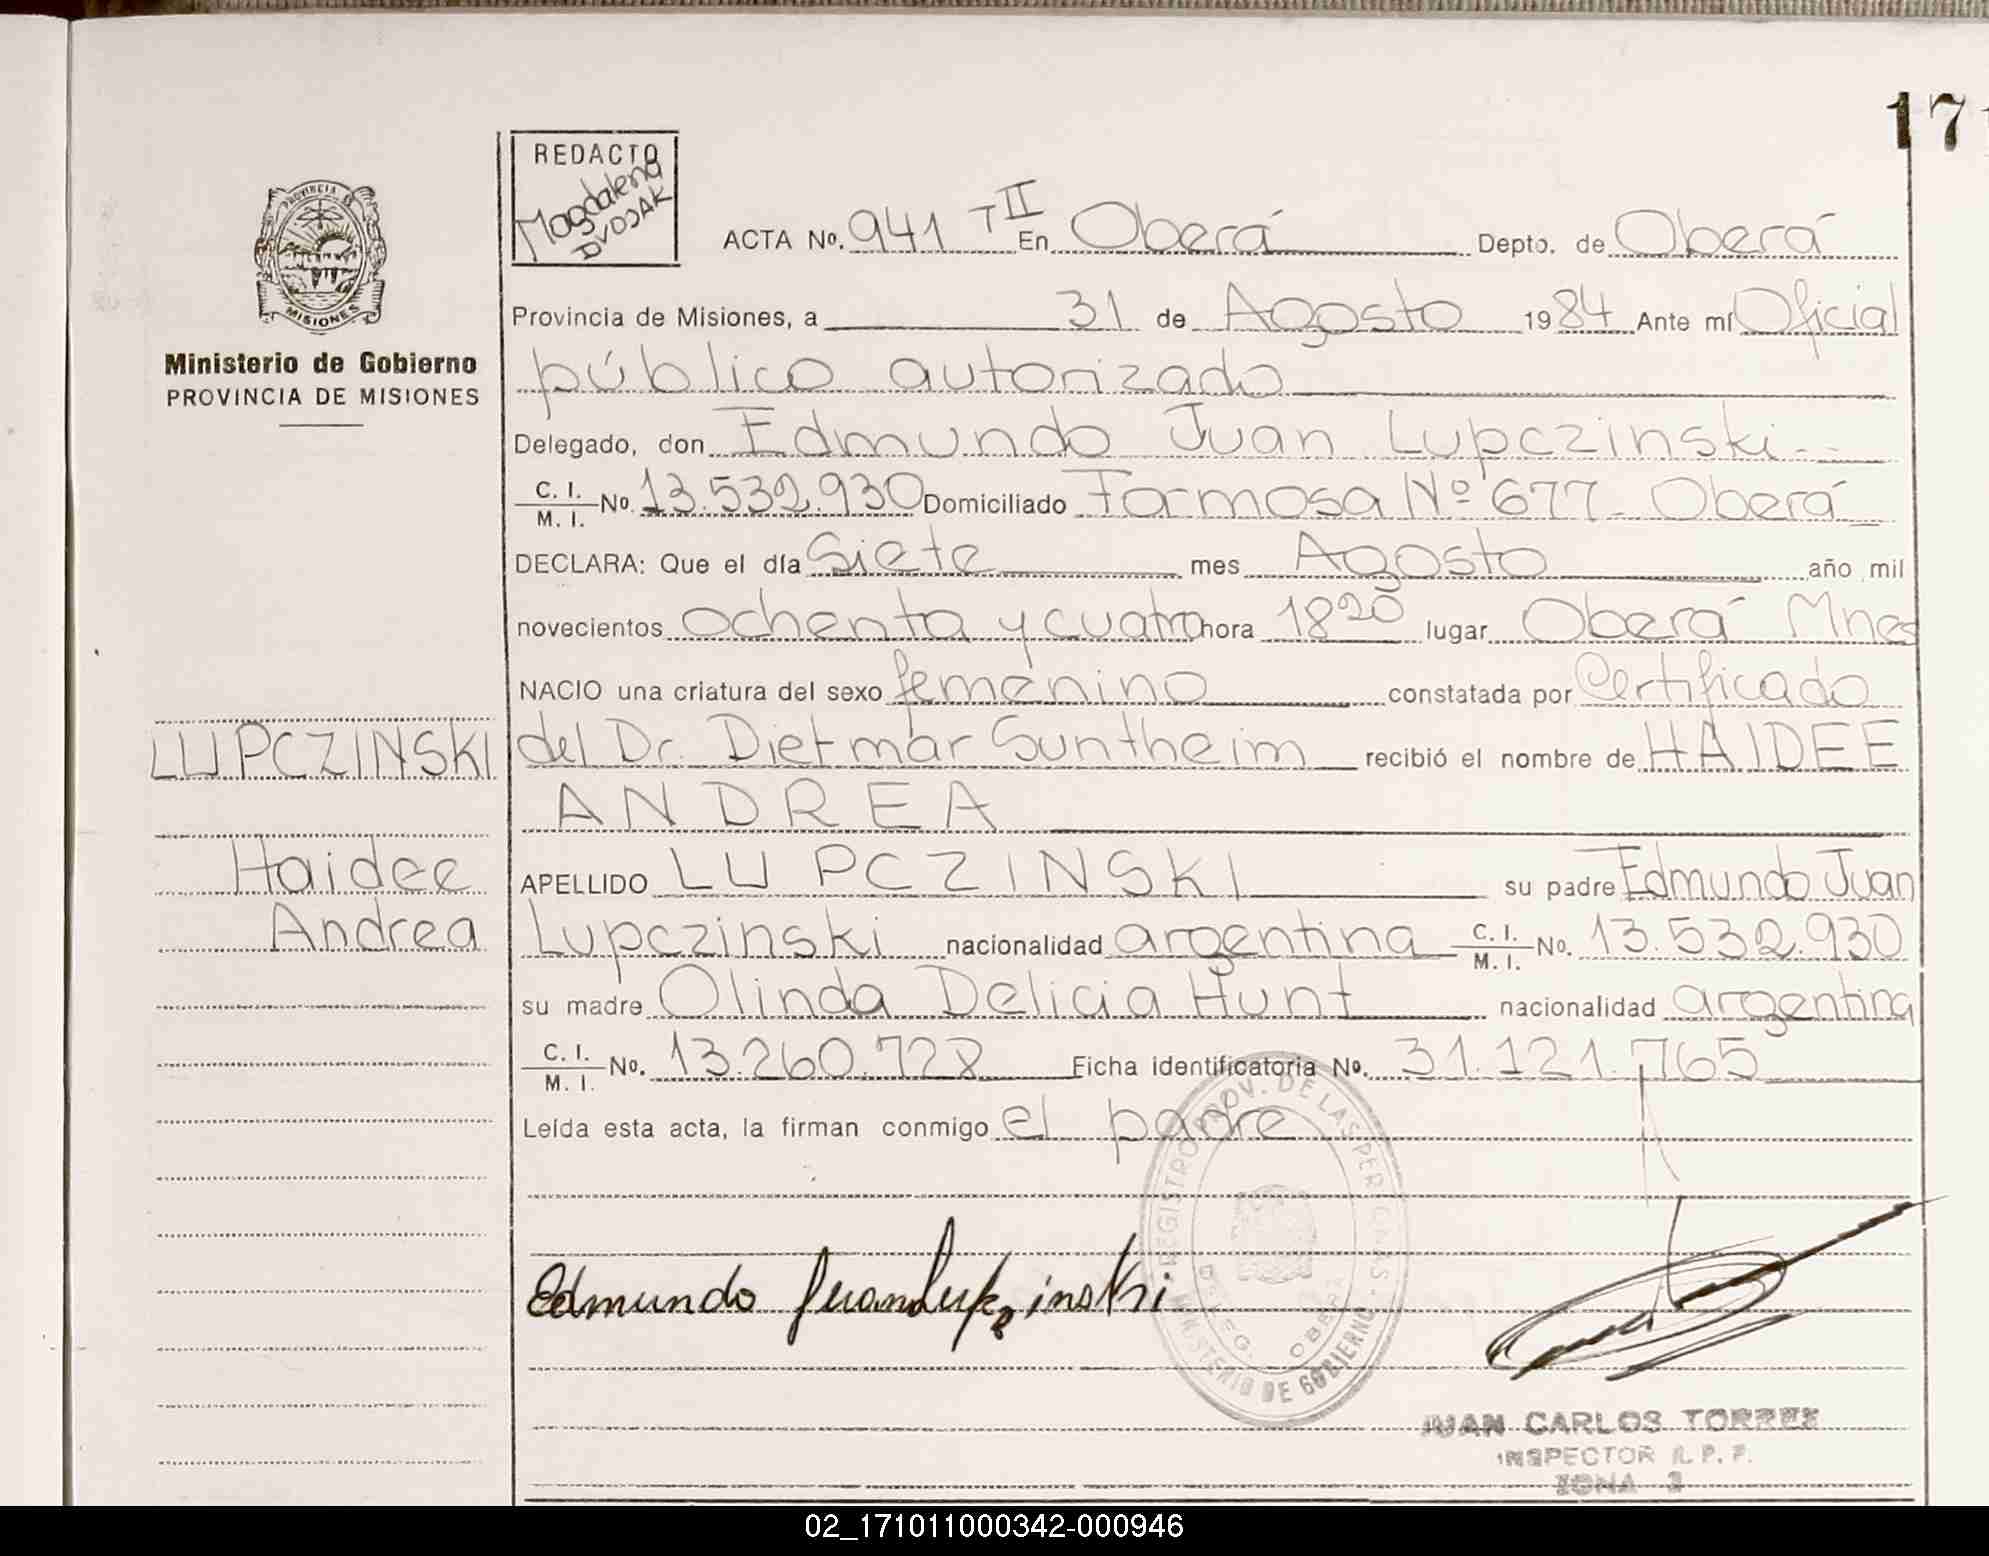 171
REDACTO
Magdalena
DVOJAK
ACTA No. 941 T II En Oberá Depto. de Oberá
PROVINCIA
MISIONES
Provincia de Misiones, a 31 de Agosto 1984 Ante mí Oficial
Ministerio de Gobierno
PROVINCIA DE MISIONES
público autorizado
Delegado, don Edmundo Juan Lupczinski --
C. I. / M. I. No. 13.532.930 Domiciliado Formosa Nº 677 - Oberá
DECLARA: Que el día Siete mes Agosto año mil
novecientos ochenta y cuatro hora 18 20 lugar Oberá Mnes
NACIO una criatura del sexo femenino constatada por Certificado
LUPCZINSKI
del Dr. Dietmar Suntheim recibió el nombre de HAIDEE
ANDREA
Haidee
Andrea
APELLIDO LUPCZINSKI su padre Edmundo Juan
Lupczinski nacionalidad argentina C. I. / M. I. No. 13.532.930
su madre Olinda Delicia Hunt nacionalidad argentina
C. I. / M. I. No. 13.260.728 Ficha identificatoria No. 31.121.765
Leída esta acta, la firman conmigo el padre
REGISTRO PROV. DE LAS PERSONAS
DELEG. OBERA
MINISTERIO DE GOBIERNO
Edmundo Juan Lupczinski
JUAN CARLOS TORRES
INSPECTOR R. P. P.
ZONA 2
02_171011000342-000946